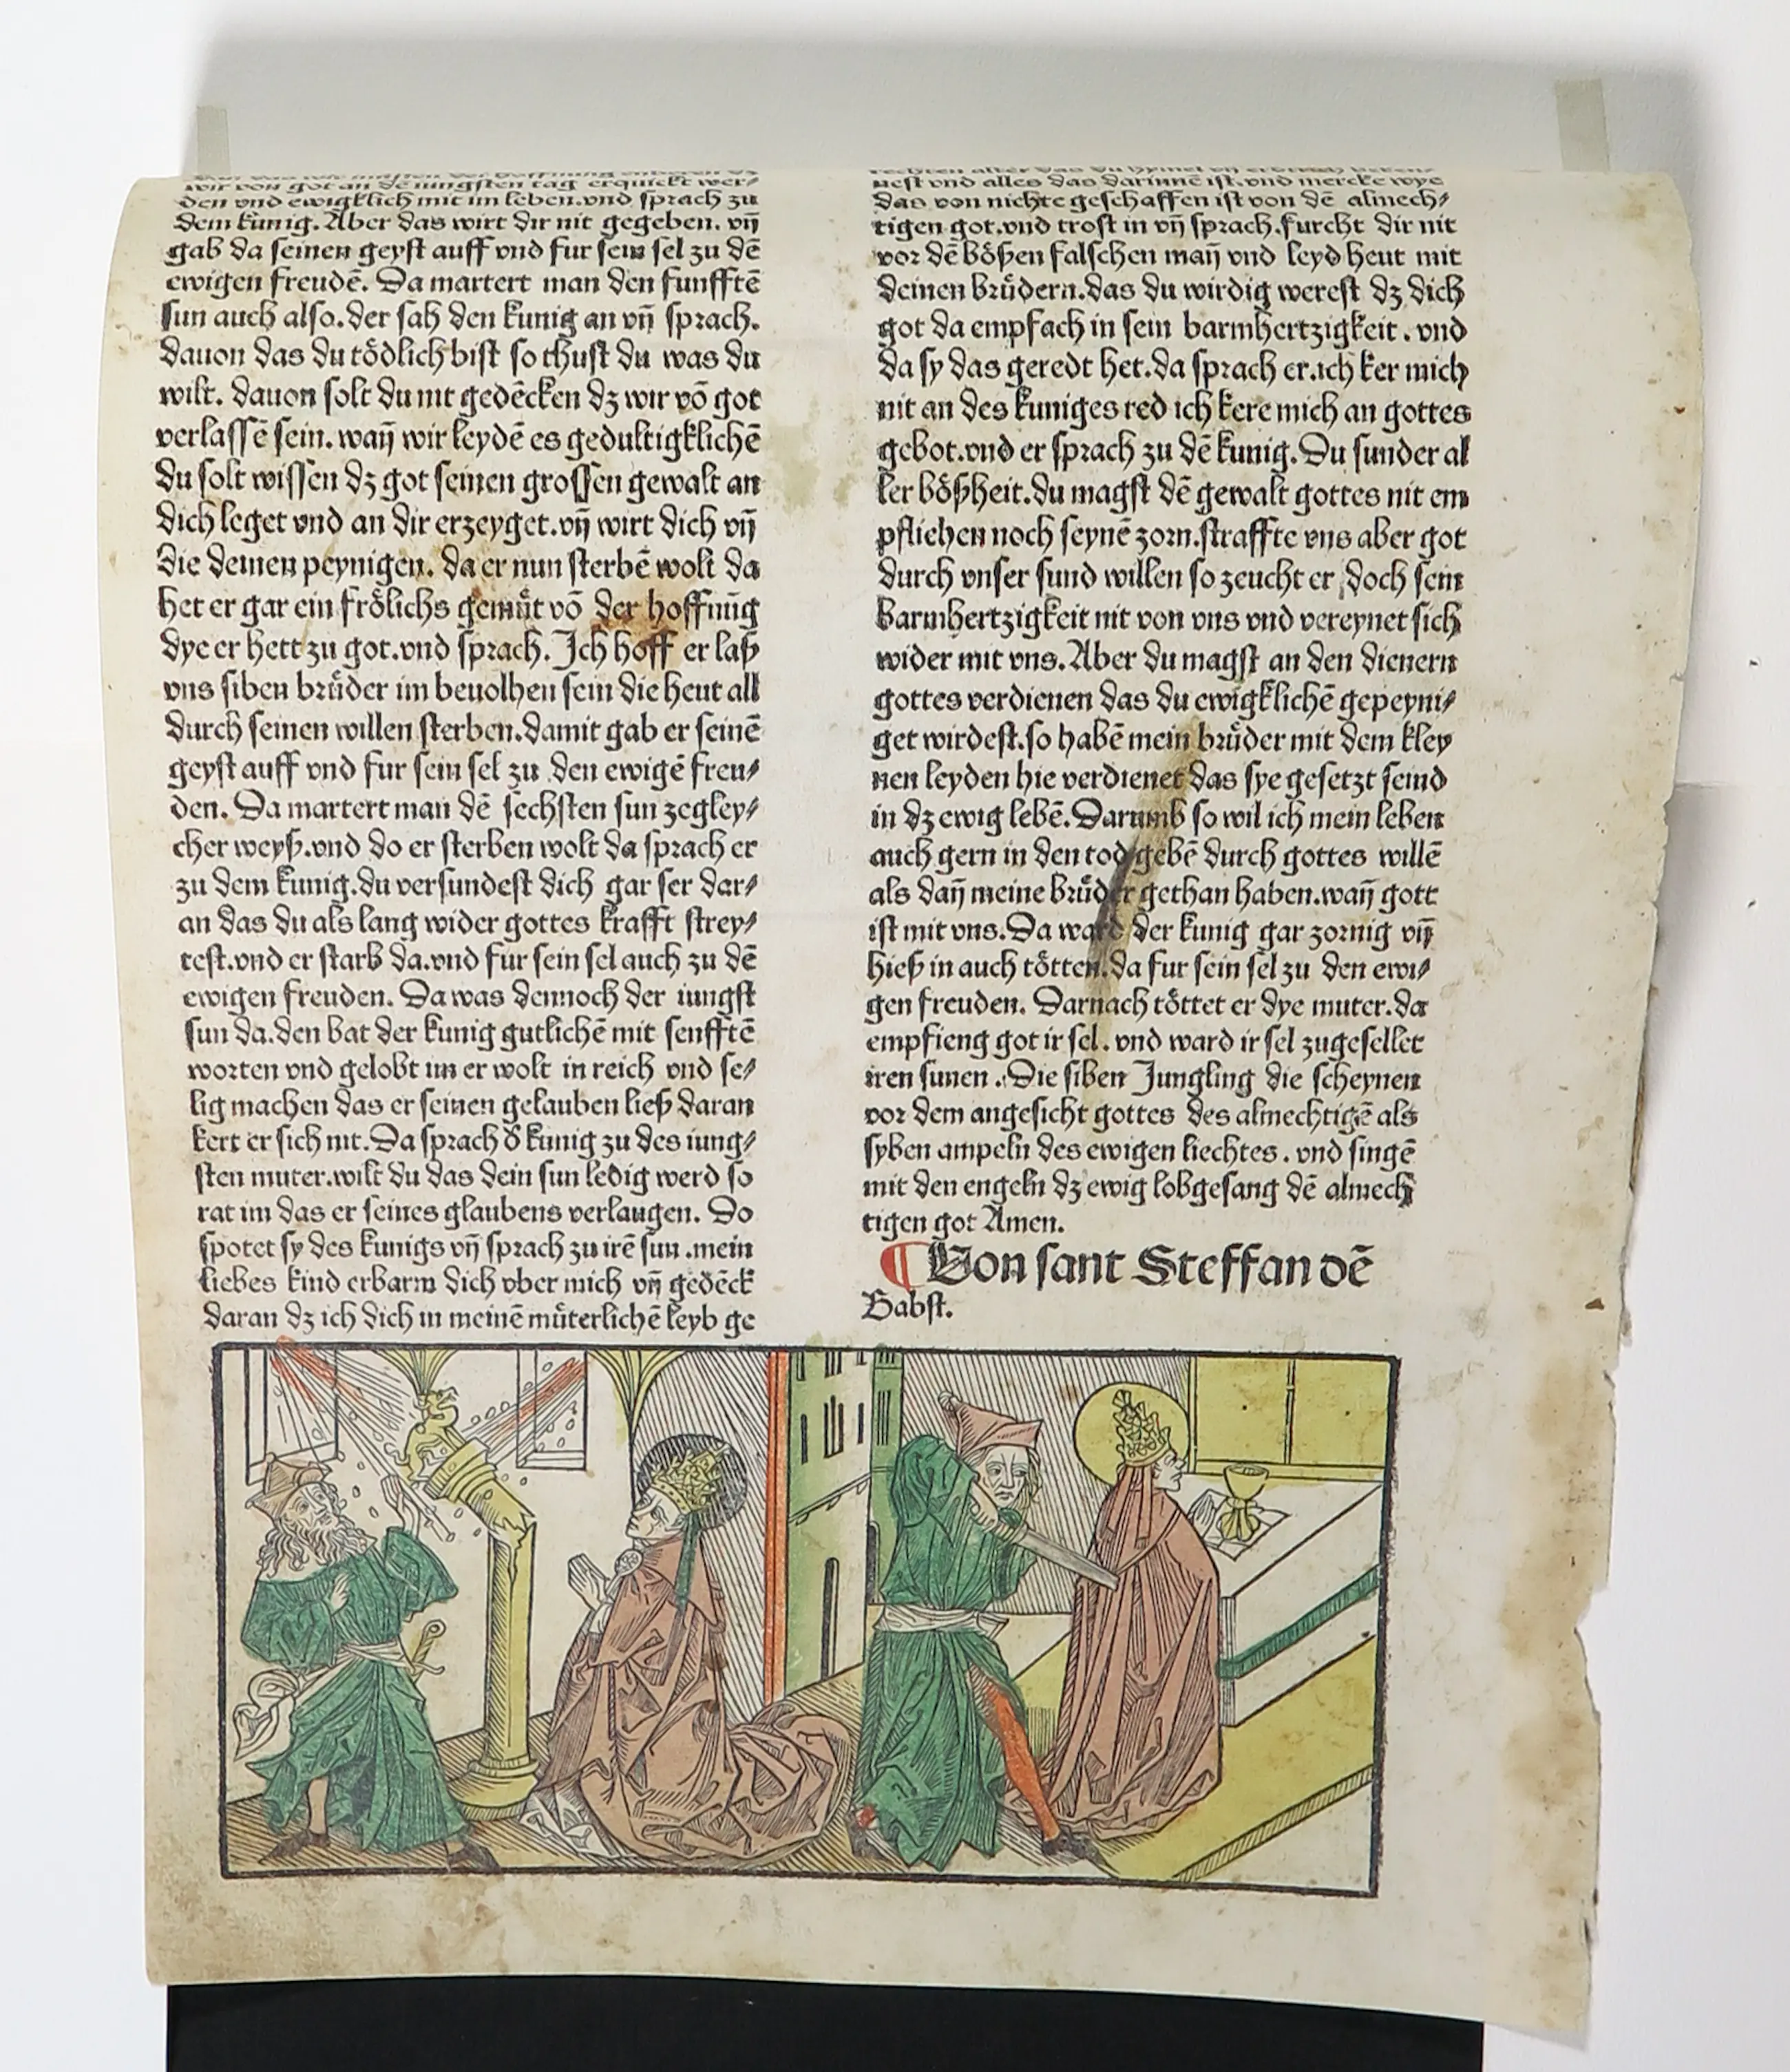 wir von got an dē iungsten tag erquickt wer⸗
den vnd ewigklich mit im leben.vnd sprach zu
dem kunig. Aber das wirt dir nit gegeben. vn̄
gab da seinen geyst auff vnd fur sein sel zu dē
ewigen freudē. Da martert man den funfftē
sun auch also.der sah den kunig an vn̄ sprach.
dauon das du tödlich bist so thust du was du
wilt. dauon solt du nit gedēcken dz wir vō got
verlassē sein. wan̄ wir leydē es gedultigklichē
du solt wissen dz got seinen grossen gewalt an
dich leget vnd an dir erzeyget.vn̄ wirt dich vn̄
die deinen peynigen. da er nun sterbē wolt da
het er gar ein frölichs gemüt vō der hoffnūg
dye er hett zu got.vnd sprach. Ich hoff er laß
vns siben brüder im beuolhen sein die heut all
durch seinen willen sterben.damit gab er seinē
geyst auff vnd fur sein sel zu den ewigē freu⸗
den. Da martert man dē sechsten sun zegley⸗
cher weyß.vnd do er sterben wolt da sprach er
zu dem kunig.du versundest dich gar ser dar⸗
an das du als lang wider gottes krafft strey⸗
test.vnd er starb da.vnd fur sein sel auch zu dē
ewigen freuden. Da was dennoch der iungst
sun da.den bat der kunig gutlichē mit senfftē
worten vnd gelobt im er wolt in reich vnd se⸗
lig machen das er seinen gelauben ließ daran
kert er sich nit. Da sprach ð kunig zu des iung⸗
sten muter.wilt du das dein sun ledig werd so
rat im das er seines glaubens verlaugen. Do
spotet sy des kunigs vn̄ sprach zu irē sun .mein
liebes kind erbarm dich vber mich vn̄ gedēck
daran dz ich dich in meinē müterlichē leyb ge
nest vnd alles das darinnē ist.vnd mercke wye
das von nichte geschaffen ist von dē almech⸗
tigen got.vnd trost in vn̄ sprach.furcht dir nit
vor dē bößen falschen man̄ vnd leyd heut mit
deinen brüdern.das du wirdig werest dz dich
got da empfach in sein barmhertzigkeit . vnd
da sy das geredt het.da sprach er.ich ker mich
nit an des kuniges red ich kere mich an gottes
gebot.vnd er sprach zu dē kunig. Du sunder al
ler bößheit.du magst dē gewalt gottes nit em
pfliehen noch seynē zorn.straffte vns aber got
durch vnser sund willen so zeucht er doch sein
barmhertzigkeit nit von vns vnd vereynet sich
wider mit vns. Aber du magst an den dienern
gottes verdienen das du ewigklichē gepeyni⸗
get wirdest.so habē mein brüder mit dem kley
nen leyden hie verdienet das sye gesetzt seind
in dz ewig lebē. Darumb so wil ich mein leben
auch gern in den tod gebē durch gottes willē
als dan̄ meine brüder gethan haben.wan̄ gott
ist mit vns. Da ward der kunig gar zornig vn̄
hieß in auch tötten.da fur sein sel zu den ewi⸗
gen freuden. Darnach töttet er dye muter.da
empfieng got ir sel. vnd ward ir sel zugesellet
iren sunen . Die siben Jungling die scheynen
vor dem angesicht gottes des almechtigē als
syben ampeln des ewigen liechtes . vnd singē
mit den engeln dz ewig lobgesang dē almech
tigen got Amen.
¶ Von sant Steffan dē
Babst.